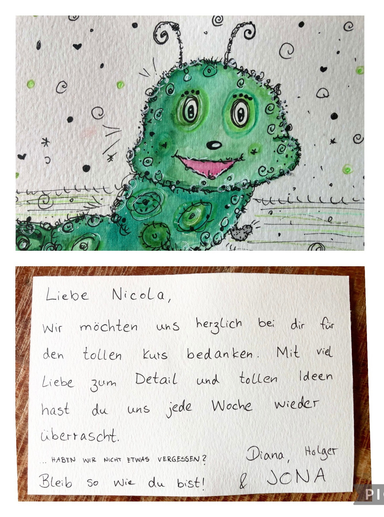 Liebe Nicola,
wir möchten uns herzlich bei dir für
den tollen Kurs bedanken. Mit viel
Liebe zum Detail und tollen Ideen
hast du uns jede Woche wieder
überrascht.
... HABEN WIR NICHT ETWAS VERGESSEN?
Diana, Holger
Bleib so wie du bist! & JONA